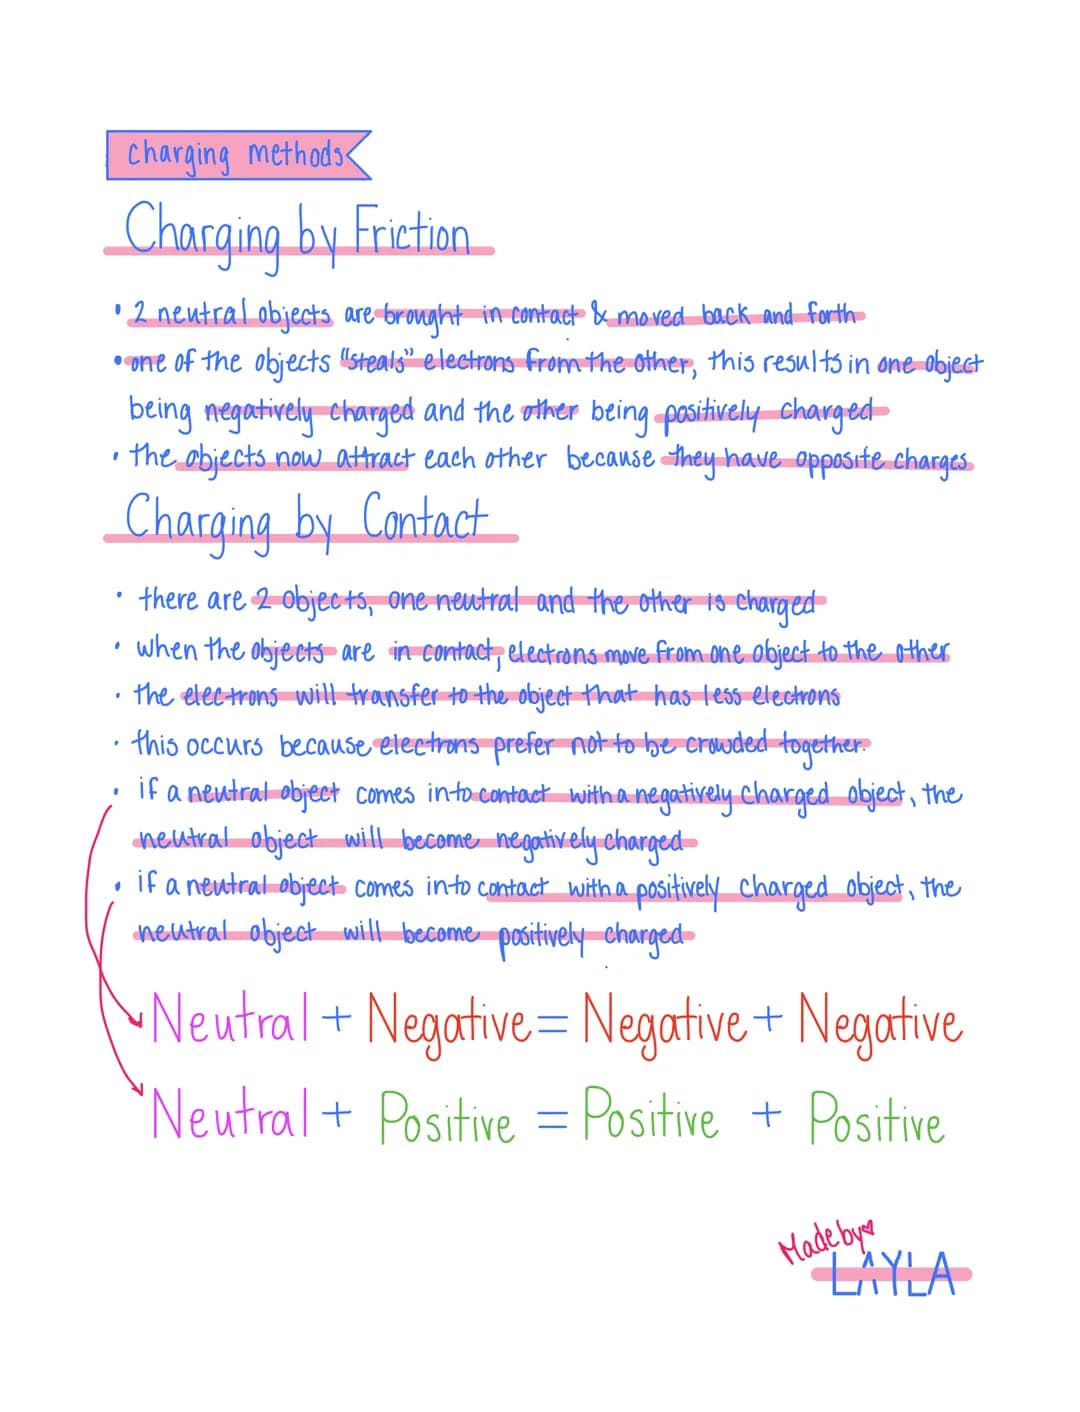 charging methods
Charging by Friction
• 2 neutral objects are brought in contact & moved back and forth
• one of the objects "steals" electrons from the other, this results in one object
being negatively charged and the other being positively charged
• the objects now attract each other because they have opposite charges
Charging by Contact
• there are 2 objects, one neutral and the other is charged
• when the objects are in contact, electrons move from one object to the other
• the electrons will transfer to the object that has less electrons
• this occurs because electrons prefer not to be crowded together.
• if a neutral object comes into contact with a negatively charged object, the
neutral object will become negatively charged
• if a neutral object comes into contact with a positively charged object, the
neutral object will become positively charged
Neutral + Negative = Negative + Negative
Neutral + Positive = Positive + Positive
Made by
LAYLA